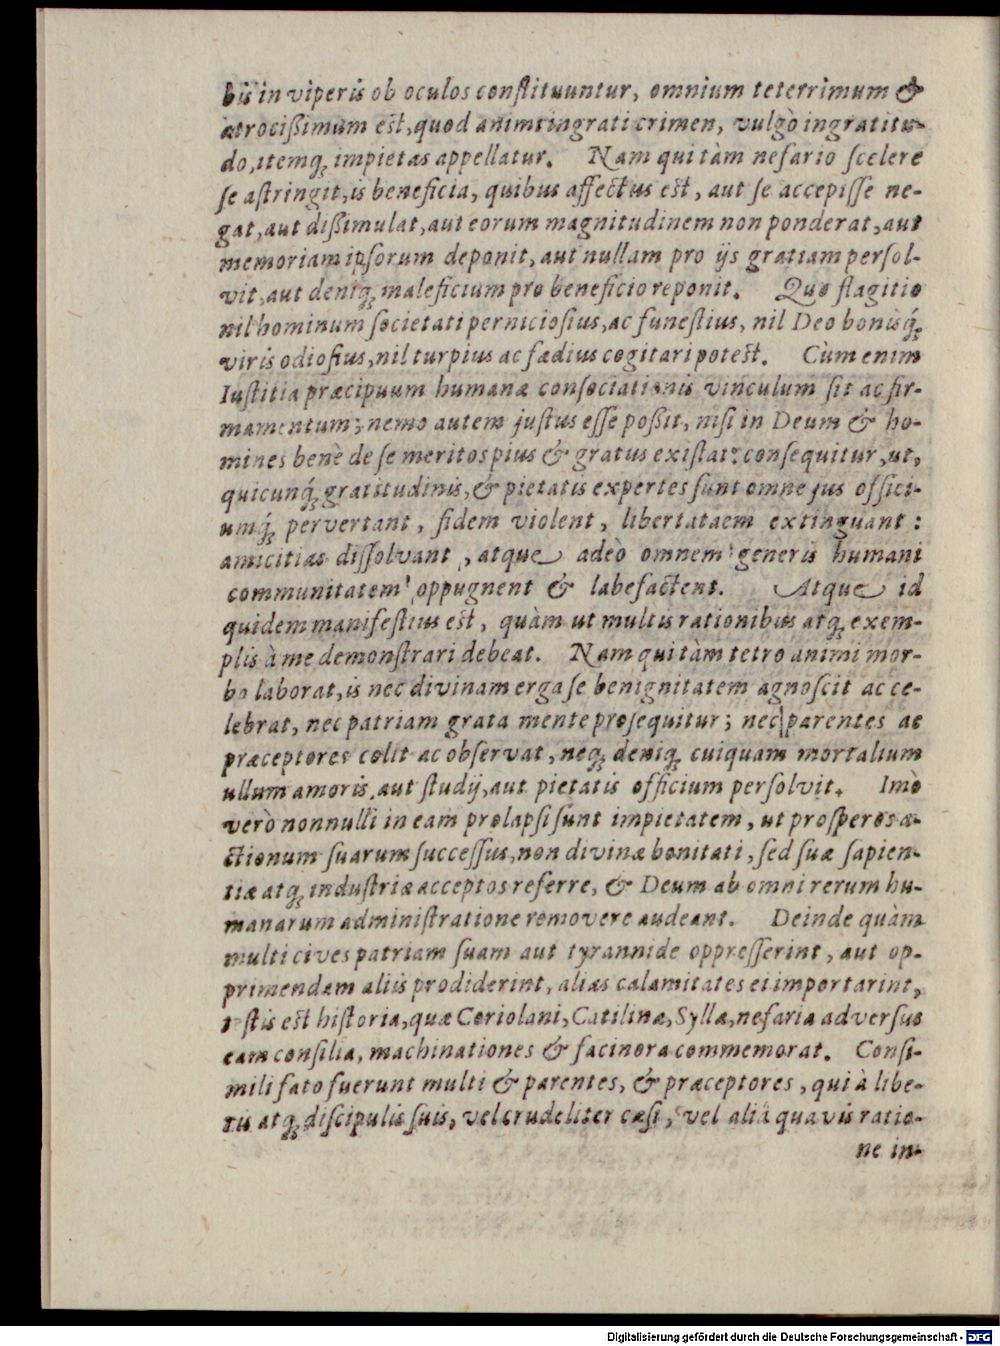 bis in viperis ob oculos conſtituuntur, omnium teterrimum &
atrocißimum eſt, quod animi ingrati crimen, vulgò ingratitu-
do, itemq́; impietas appellatur. Nam qui tàm nefario ſcelere
ſe aſtringit, is beneficia, quibus affectus eſt, aut ſe accepiſſe ne-
gat, aut dißimulat, aut eorum magnitudinem non ponderat, aut
memoriam ipſorum deponit, aut nullam pro ijs gratiam perſol-
vit, aut deniq; maleficium pro beneficio reponit. Quo flagitio
nil hominum ſocietati pernicioſius, ac funeſtius, nil Deo bonisq́;
viris odioſius, nil turpius ac fœdius cogitari poteſt. Cùm enim
Iuſtitia præcipuum humanæ conſociationis vinculum ſit ac fir-
mamentum; nemo autem juſtus eſſe poßit, niſi in Deum & ho-
mines benè de ſe meritos pius & gratus exiſtat: conſequitur, ut,
quicunq́; gratitudinis, & pietatis expertes ſunt omne jus offici-
umq́; pervertant, fidem violent, libertataem extinguant:
amicitias diſſolvant, atque adeò omnem generis humani
communitatem oppugnent & labefactent. Atque id
quidem manifeſtius eſt, quàm ut multis rationibus atq; exem-
plis à me demonſtrari debeat. Nam qui tàm tetro animi mor-
bo laborat, is nec divinam erga ſe benignitatem agnoſcit ac ce-
lebrat, nec patriam grata mente proſequitur; nec parentes ac
præceptores colit ac obſervat, neq; deniq; cuiquam mortalium
ullum amoris, aut ſtudij, aut pietatis officium perſolvit. Imò
verò nonnulli in eam prolapſi ſunt impietatem, ut proſperos a-
ctionum ſuarum ſucceſſus, non divinæ bonitati, ſed ſuæ ſapien-
tiæ atq; induſtriæ acceptos referre, & Deum ab omni rerum hu-
manarum adminiſtratione removere audeant. Deinde quàm
multi cives patriam ſuam aut tyrannide oppreſſerint, aut op-
primendam aliis prodiderint, alias calamitates ei importarint,
teſtis eſt hiſtoria, quæ Coriolani, Catilinæ, Syllæ, nefaria adverſus
eam conſilia, machinationes & facinora commemorat. Conſi-
mili fato fuerunt multi & parentes, & præceptores, qui à libe-
ris atq; diſcipulis ſuis, vel crudeliter cæſi, vel aliâ quavis ratio-
ne in-
Digitalisierung gefördert durch die Deutsche Forschungsgemeinschaft - DFG